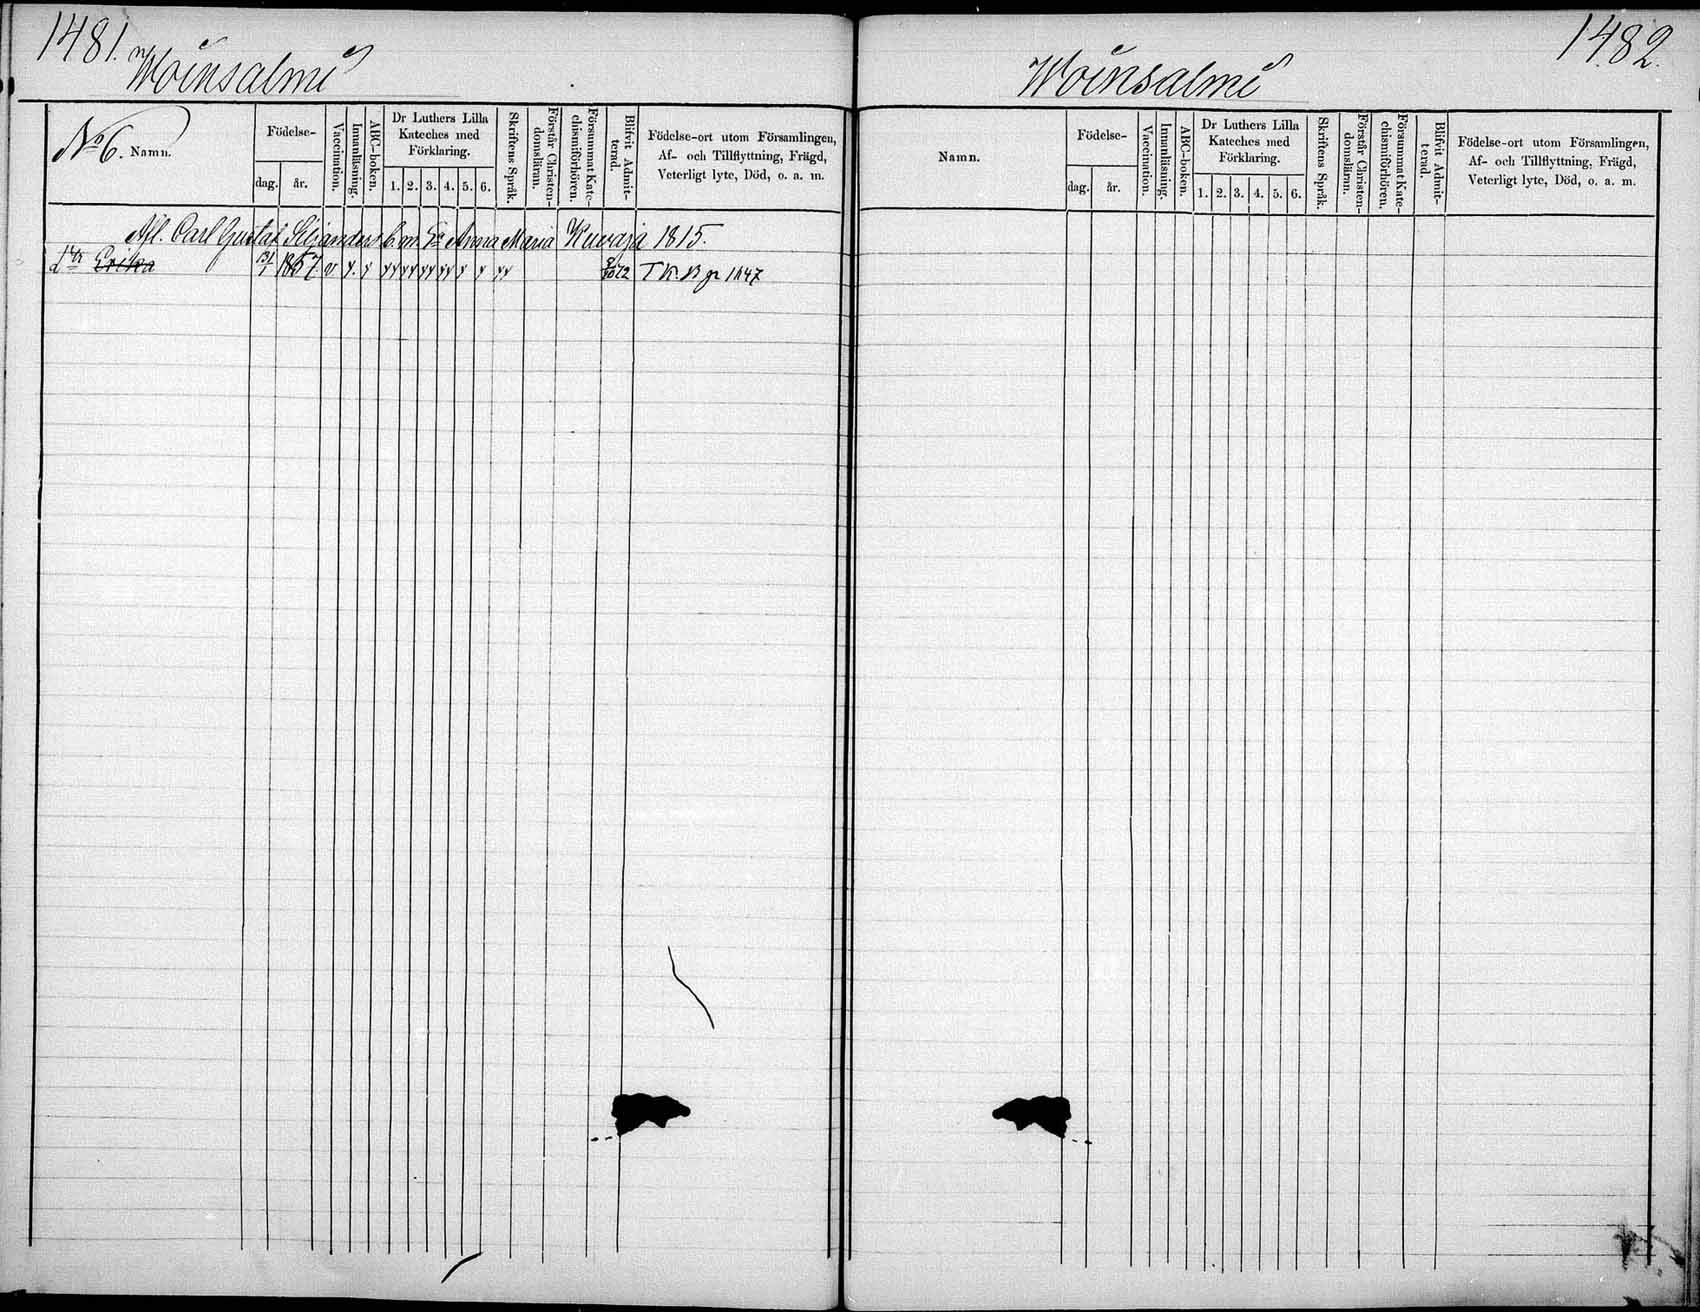 1481.
Woinsalmi
No 6. Namn.
Födelse-
dag. år.
Vaccination.
Innanläsning.
ABC-boken.
Dr Luthers Lilla
Kateches med
Förklaring.
1. 2. 3. 4. 5. 6.
Skriftens Språk.
Förstår Christen-
domsläran.
Försummat Kate-
chismiförhören.
Blifvit Admit-
terad.
Födelse-ort utom Församlingen,
Af- och Tillflyttning, Frägd,
Veterligt lyte, Död, o. a. m.
Afl. Carl Gustaf Anna Maria 1815.
Erika 1857
1482.
Woinsalmi
Namn.
Födelse-
dag. år.
Vaccination.
Innanläsning.
ABC-boken.
Dr Luthers Lilla
Kateches med
Förklaring.
1. 2. 3. 4. 5. 6.
Skriftens Språk.
Förstår Christen-
domsläran.
Försummat Kate-
chismiförhören.
Blifvit Admit-
terad.
Födelse-ort utom Församlingen,
Af- och Tillflyttning, Frägd,
Veterligt lyte, Död, o. a. m.